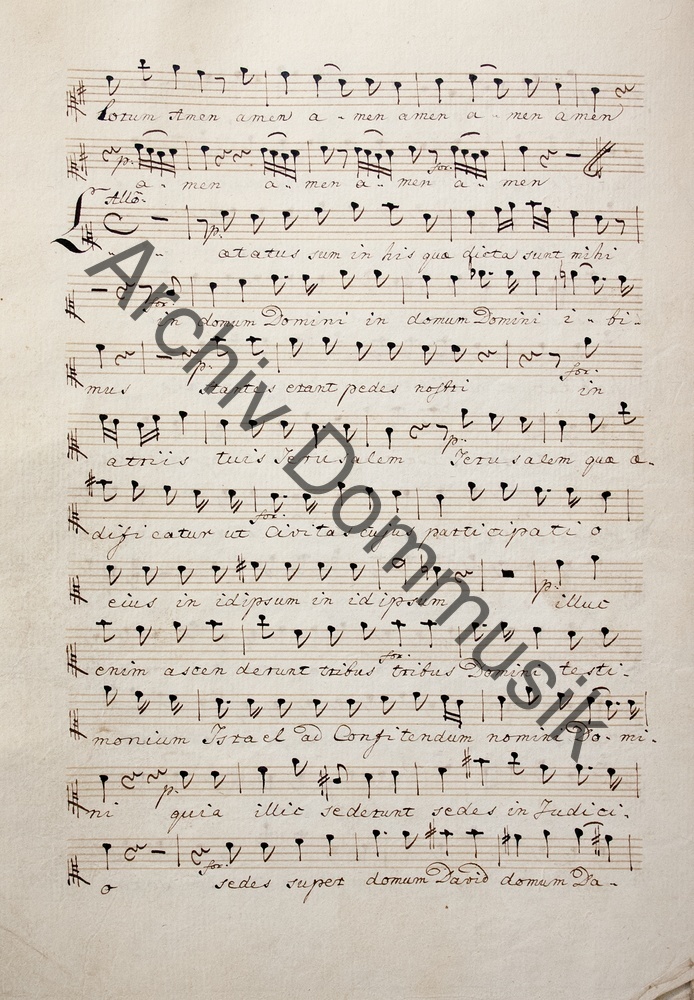 lorum Amen amen a - men amen a - men amen
p.
for.
a - men a - men a - men a - men
Allo.
L
p.
ætatus sum in his quæ dicta sunt mihi
for.
in domum Domini in domum Domini i - bi-
p.
for.
mus stantes erant pedes nostri in
p.
atriis tuis Jerusalem Jerusalem quæ æ-
for.
dificatur ut Civitas cujus participati o
p.
eius in idipsum in idipsum illuc
for.
enim ascen derunt tribus tribus Domini testi-
monium Israel ad Confitendum nomini Do-mi-
p.
ni quia illic sederunt sedes in Judici-
for.
o sedes super domum David domum Da-
Archiv Dommusik